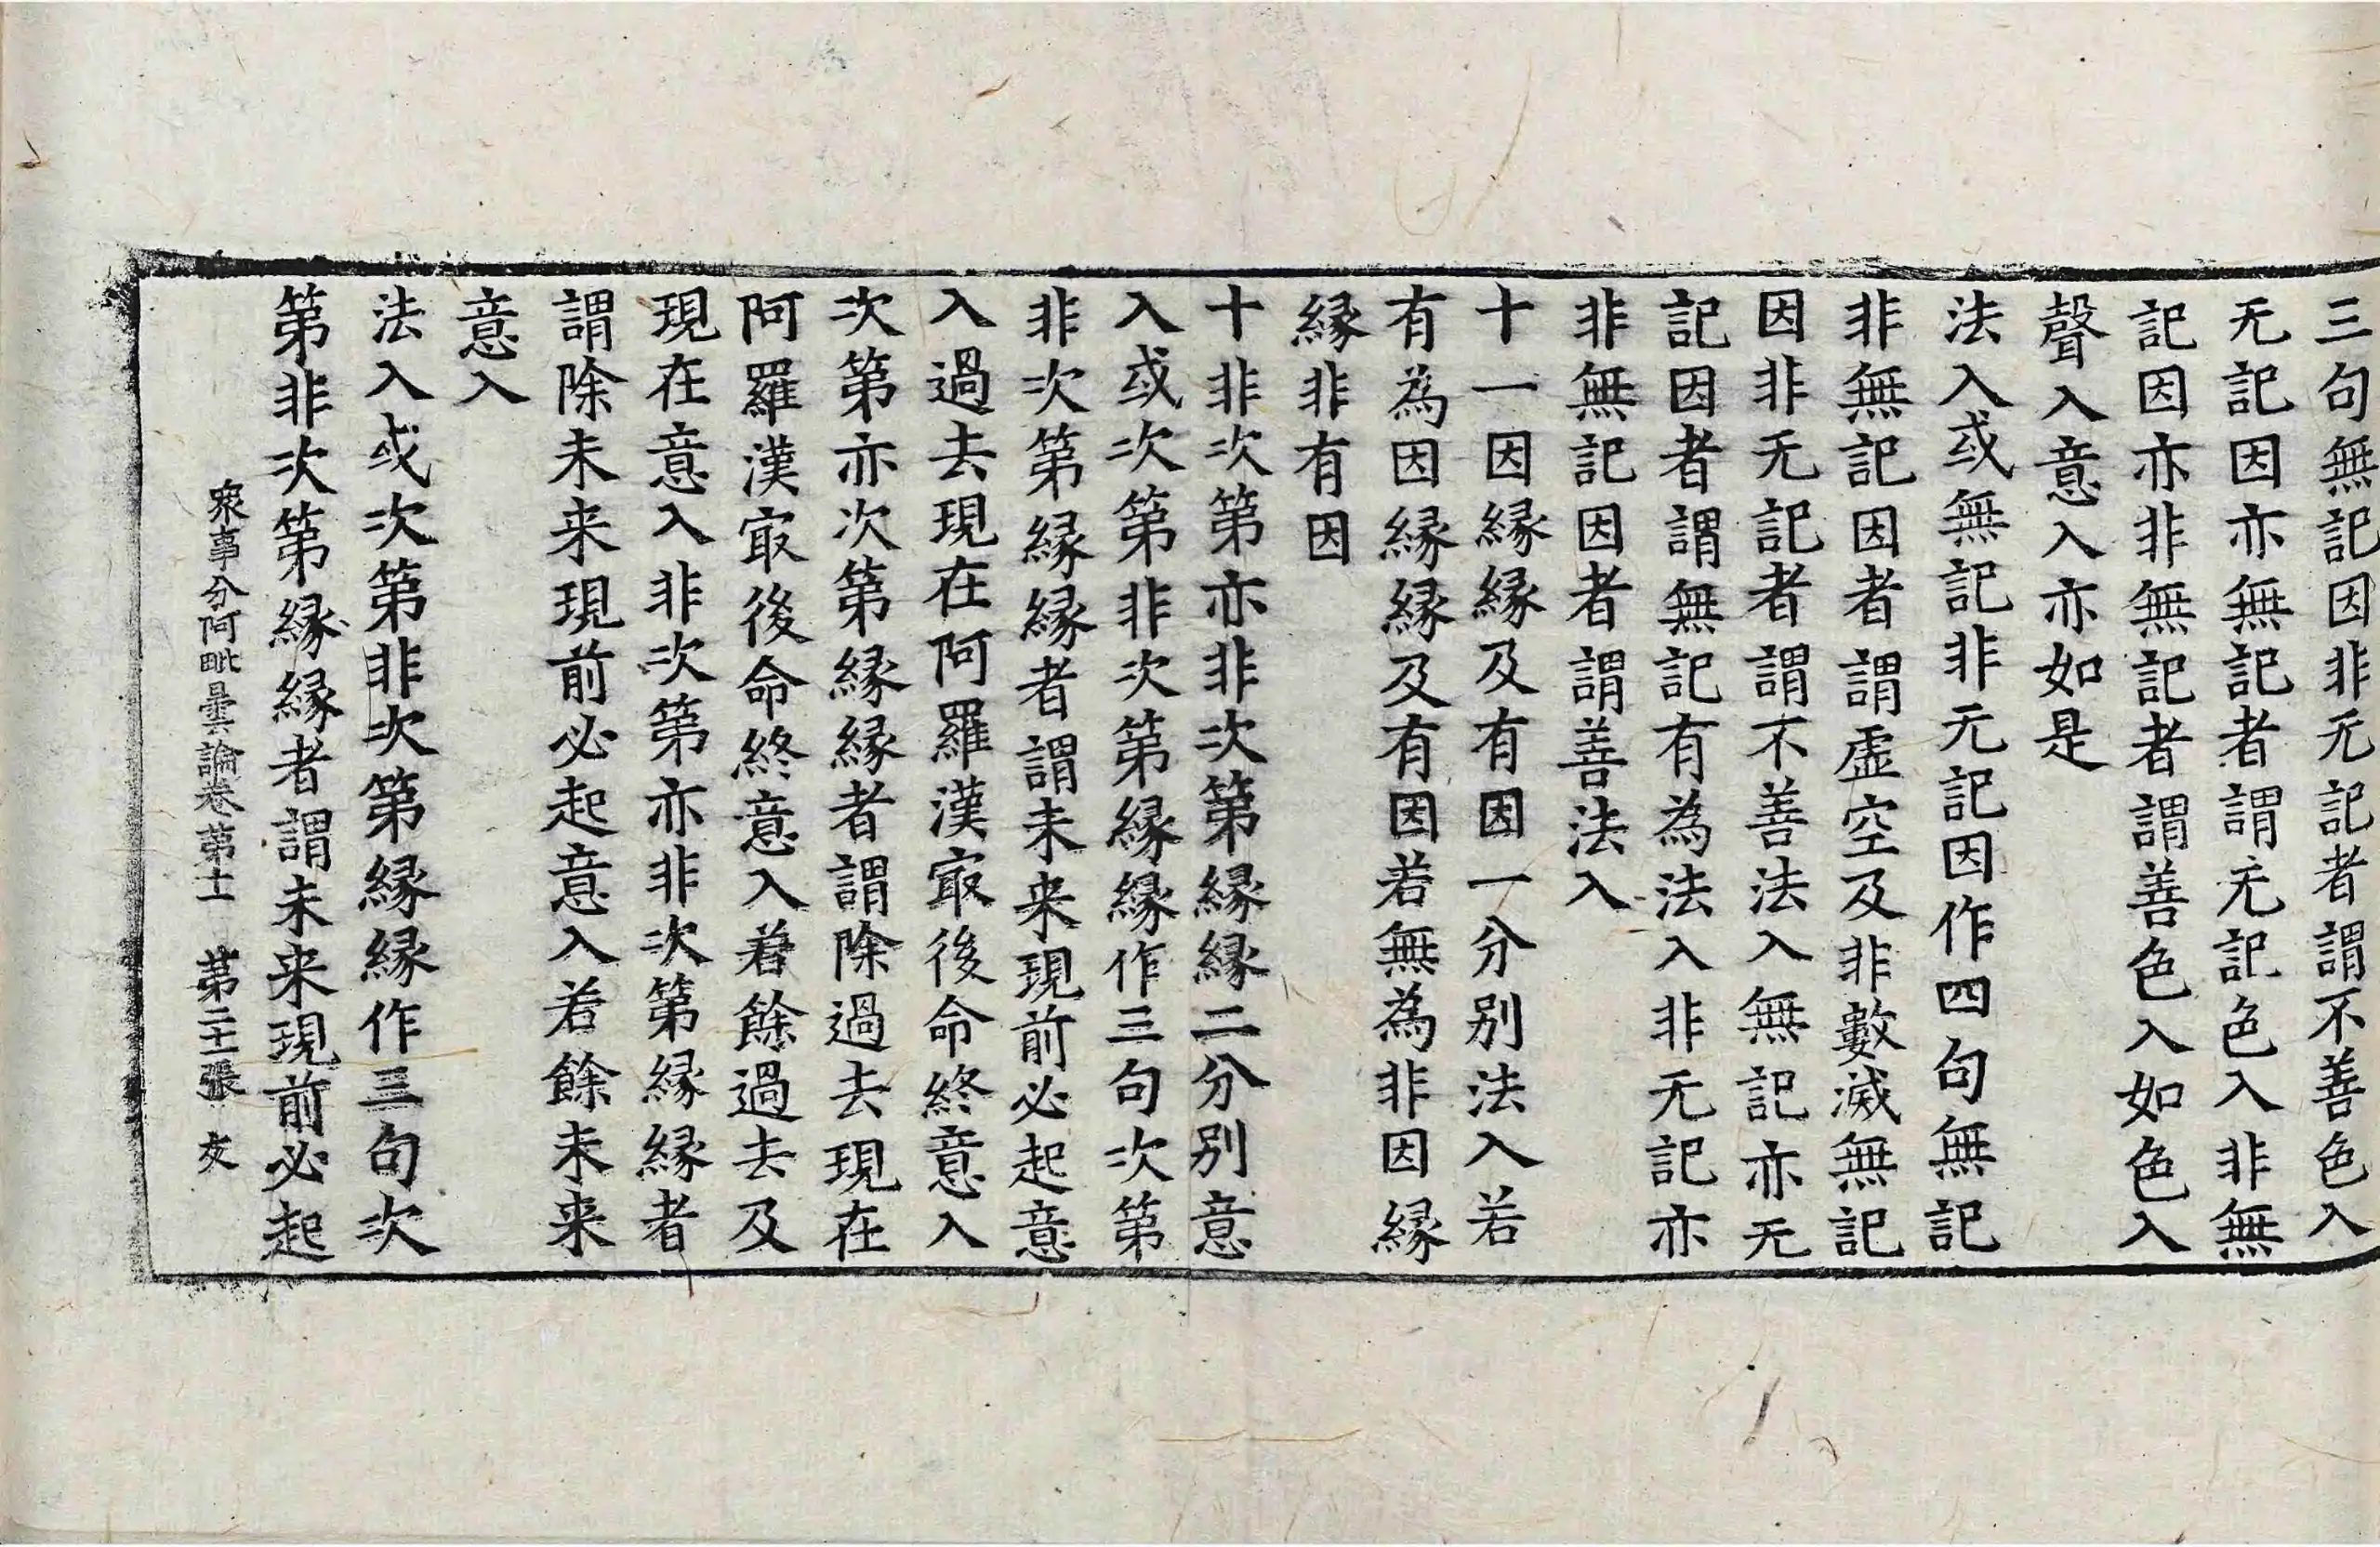 三句無記因非无記者謂不善色入
无記因亦無記者謂无記色入非無
記因亦非無記者謂善色入如色入
聲入意入亦如是
法入或無記非无記因作四句無記
非無記因者謂虛空及非數滅無記
因非无記者謂不善法入無記亦无
記因者謂無記有為法入非无記亦
非無記因者謂善法入
十一因緣及有因一分別法入若
有為因緣緣及有因若無為非因緣
緣非有因
十非次第亦非次第緣緣二分別意
入或次第非次第緣緣作三句次第
非次第緣緣者謂未来現前必起意
入過去現在阿羅漢㝡後命終意入
次第亦次第緣緣者謂除過去現在
阿羅漢㝡後命終意入若餘過去及
現在意入非次第亦非次第緣緣者
謂除未来現前必起意入若餘未来
意入
法入或次第非次第緣緣作三句次
第非次第緣緣者謂未来現前必起
衆事分阿毗曇論卷第十一 第二十一張 友